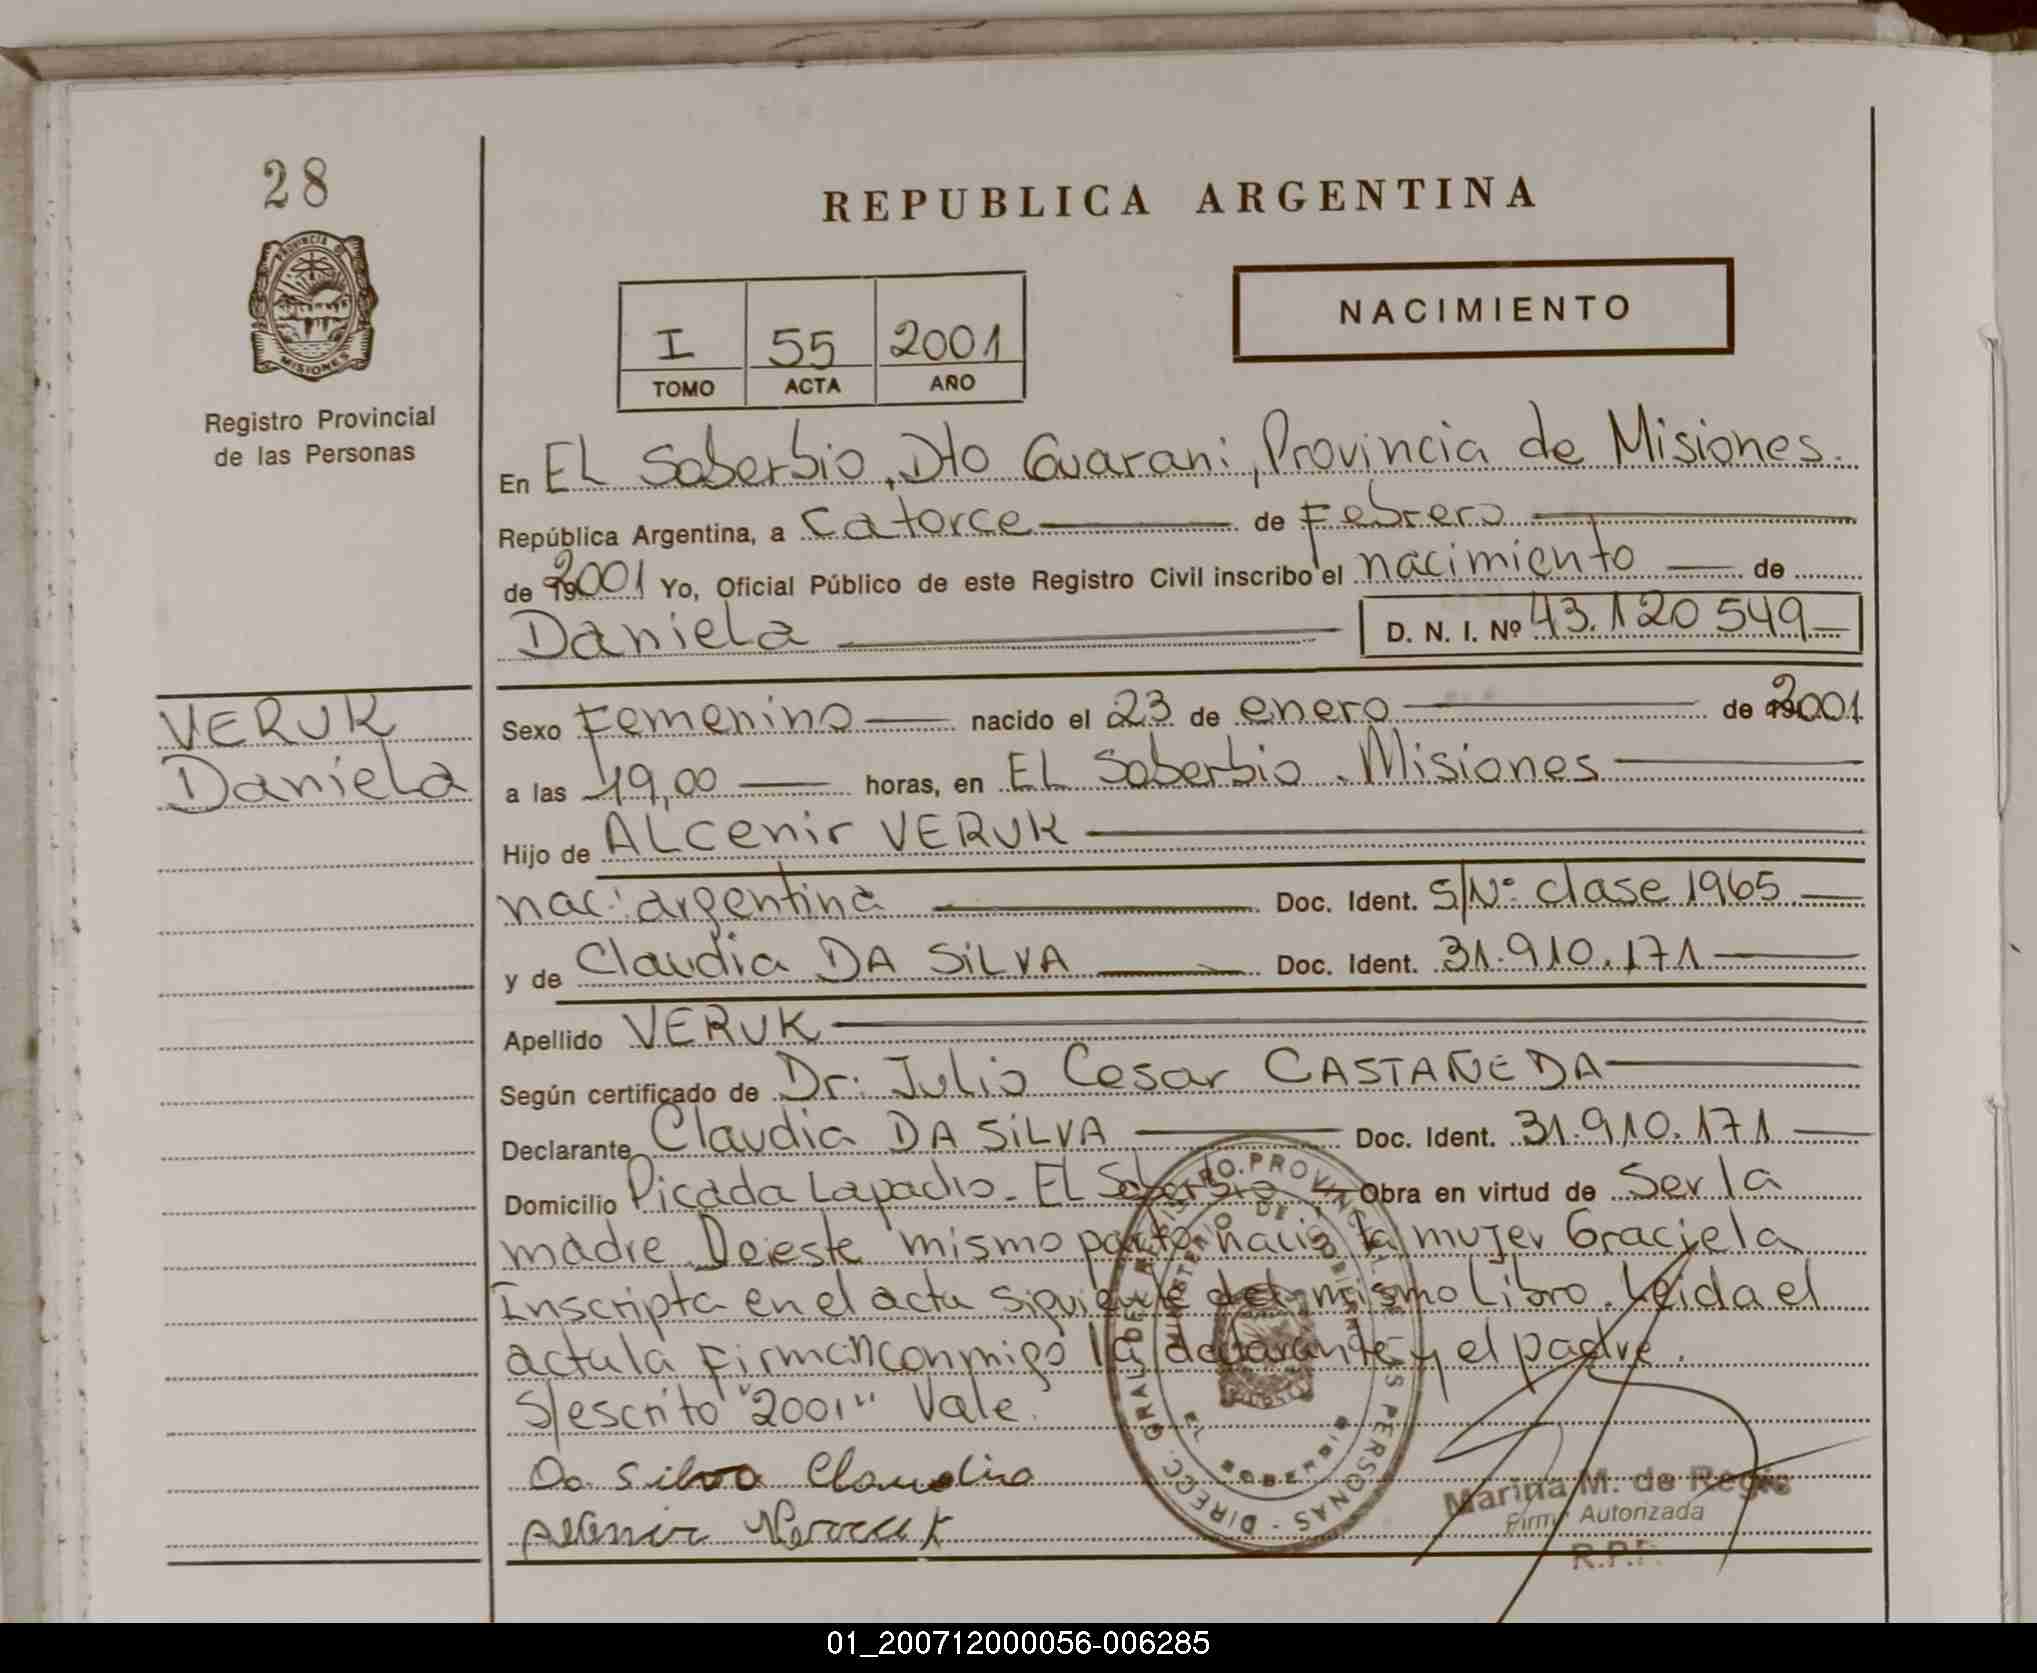 28
REPUBLICA ARGENTINA
PROVINCIA DE
MISIONES
NACIMIENTO
I 55 2001
TOMO ACTA AÑO
Registro Provincial
de las Personas
En EL Soberbio, Dto Guarani, Provincia de Misiones.
República Argentina, a catorce de Febrero
de 2001 Yo, Oficial Público de este Registro Civil inscribo el nacimiento de
Daniela D. N. I. Nº 43.120 549
VERUK
Daniela
Sexo Femenino nacido el 23 de enero de 2001
a las 19,00 horas, en EL Soberbio. Misiones
Hijo de ALcenir VERUK
nac: argentina Doc. Ident. S/Nº clase 1965
y de Claudia DA SiLVA Doc. Ident. 31.910.171
Apellido VERUK
Según certificado de Dr: Julio Cesar CASTAÑEDA
Declarante Claudia DA SiLVA Doc. Ident. 31.910.171
Domicilio Picada Lapacho - EL Soberbio Obra en virtud de Ser la
madre. De este mismo parto nacio la mujer Graciela
Inscripta en el acta siguiente del mismo Libro. Leida el
acta la Firman conmigo la declarante y el padre.
S/escrito "2001" Vale.
Da Silva Claudia
DIREC. GRAL DEL REGISTRO PROVINCIAL DE LAS PERSONAS
MINISTERIO DE GOBIERNO
EL SOBERBIO
Marina M. de Regis
Firma Autorizada
R.P.P.
01_200712000056-006285